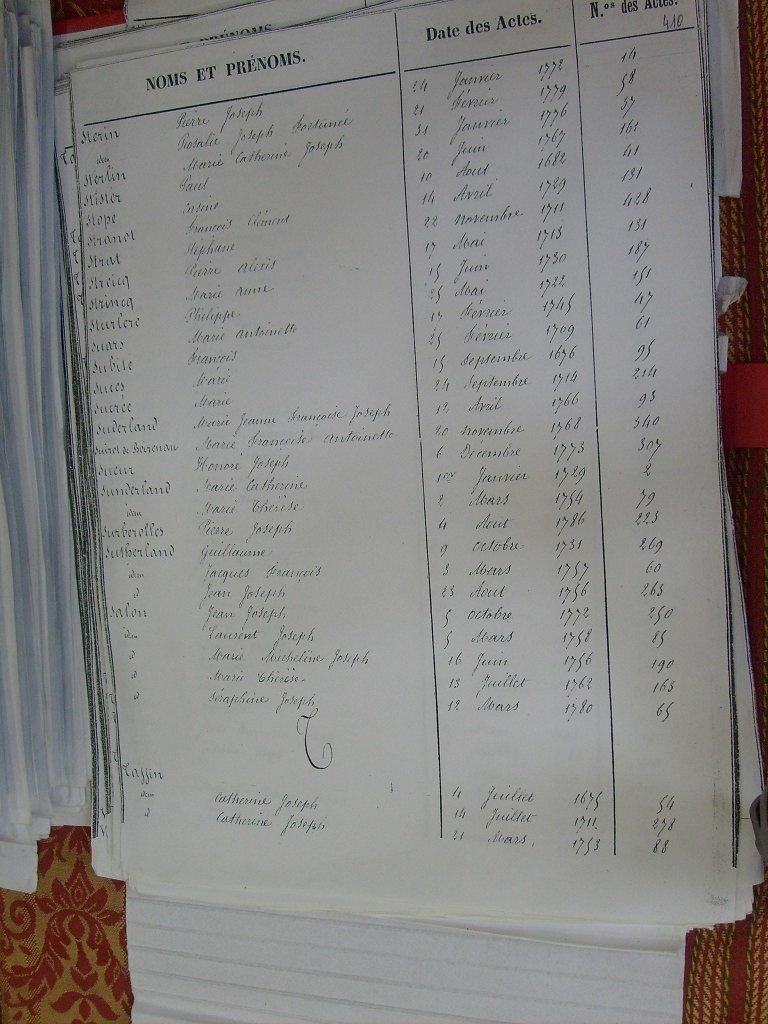 NOMS ET PRÉNOMS. Date des Actes. N.os des Actes.
410
Sterin Pierre Joseph 24 Janvier 1772 14
idem Rosalie Joseph Fortunée 21 Février 1779 58
Sterlin Marie Catherine Joseph 31 Janvier 1776 37
Stister Paul 20 Juin 1767 161
Stope 10 Aout 1682 41
Stranot François Clément 14 Avril 1729 131
Strat Stephane 22 novembre 1711 428
Streicq Pierre Alexis 17 Mai 1713 131
Strincq Marie Anne 15 Juin 1730 187
Sturlere Philippe 25 Mai 1722 151
Suars Marie Antoinette 17 Février 1745 47
Subite François 25 Février 1709 61
Suces Marie 15 Septembre 1676 95
Sucrée Marie 24 Septembre 1714 214
Suderland Marie Jeanne Françoise Joseph 12 Avril 1766 93
de Marie Françoise Antoinette 20 novembre 1768 340
Sueur Honoré Joseph 6 Décembre 1773 307
Sunderland Marie Catherine 1er Janvier 1729 2
idem Marie Thérèse 2 Mars 1754 79
Surberolles Pierre Joseph 4 Aout 1786 223
Sutherland Guillaume 9 octobre 1731 269
idem Jacques François 3 Mars 1757 60
d Jean Joseph 23 Aout 1756 263
Salon Jean Joseph 5 octobre 1772 250
idem Laurent Joseph 5 Mars 1758 25
d Marie Micheline Joseph 16 Juin 1756 190
d Marie Thérèse 13 Juillet 1762 163
d Séraphine Joseph 12 Mars 1780 65
T
Tassin 4 Juillet 1675 54
idem Catherine Joseph 14 Juillet 1711. 278
d Catherine Joseph 21 Mars. 1753 88